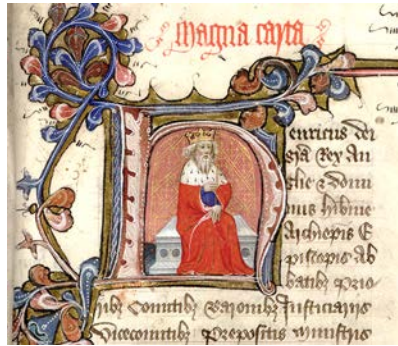 magna carta
Henricus dei
gra Rex An
glie & domi
nus hibnie
Archiepis E
piscopis Ab
batibz Prio
ribz Comitibz Baronibz Justiciariis
Vicecomitibz Prepositis ministris